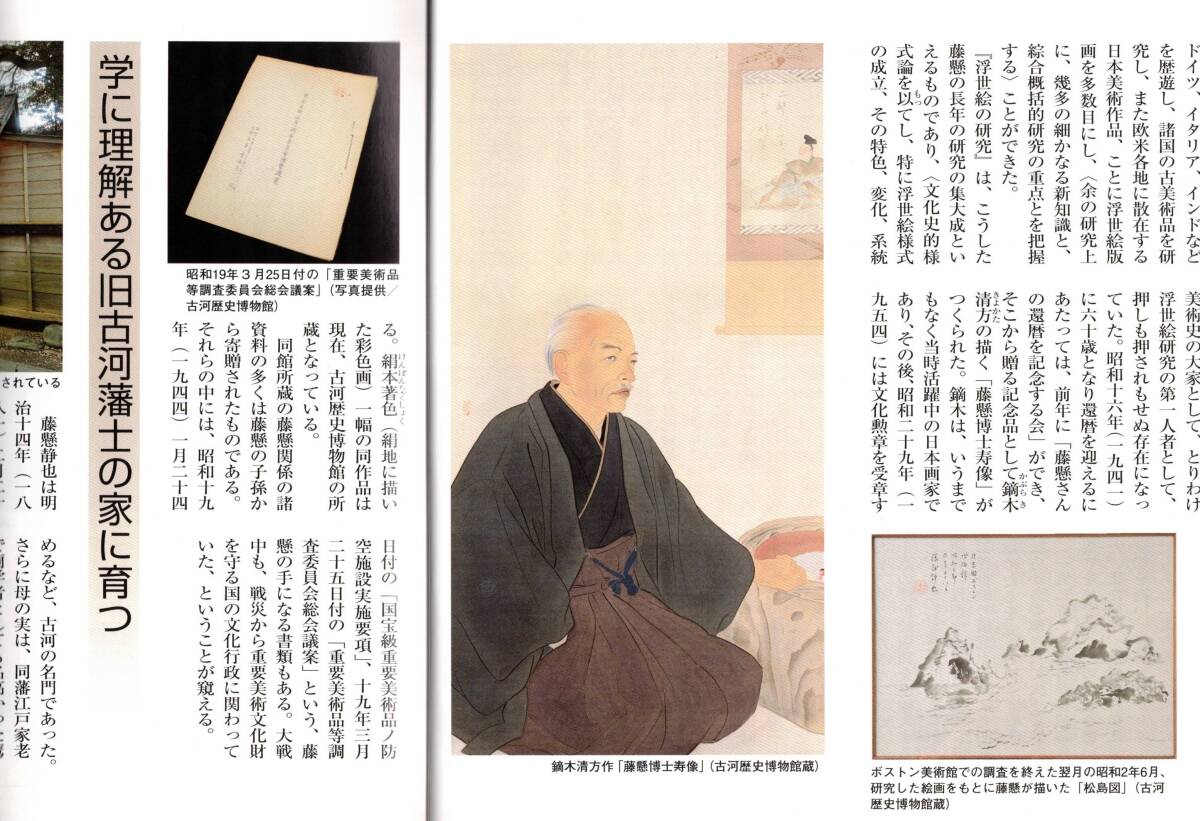 ドイツ、イタリア、インドなど
を歴遊し、諸国の古美術品を研
究し、また欧米各地に散在する
日本美術作品、ことに浮世絵版
画を多数目にし、〈余の研究上
に、幾多の細かなる新知識と、
綜合概括的研究の重点とを把握
する〉ことができた。
『浮世絵の研究』は、こうした
藤懸の長年の研究の集大成とい
えるものであり、〈文化史的様
式論を以てし、特に浮世絵様式
の成立、その特色、変化、系統
美術史の大家として、とりわけ
浮世絵研究の第一人者として、
押しも押されもせぬ存在になっ
ていた。昭和十六年（一九四一）
に六十歳となり還暦を迎えるに
あたっては、前年に「藤懸さん
の還暦を記念する会」ができ、
そこから贈る記念品として鏑木
清方の描く「藤懸博士寿像」が
つくられた。鏑木は、いうまで
もなく当時活躍中の日本画家で
あり、その後、昭和二十九年（一
九五四）には文化勲章を受章す
ボストン美術館での調査を終えた翌月の昭和2年6月、
研究した絵画をもとに藤懸が描いた「松島図」（古河
歴史博物館蔵）
鏑木清方作「藤懸博士寿像」（古河歴史博物館蔵）
昭和19年3月25日付の「重要美術品
等調査委員会総会議案」（写真提供／
古河歴史博物館）
る。絹本著色（絹地に描い
た彩色画）一幅の同作品は
現在、古河歴史博物館の所
蔵となっている。
同館所蔵の藤懸関係の諸
資料の多くは藤懸の子孫か
ら寄贈されたものである。
それらの中には、昭和十九
年（一九四四）一月二十四
日付の「国宝級重要美術品ノ防
空施設実施要項」、十九年三月
二十五日付の「重要美術品等調
査委員会総会議案」という、藤
懸の手になる書類もある。大戦
中も、戦災から重要美術文化財
を守る国の文化行政に関わって
いた、ということが窺える。
学に理解ある旧古河藩士の家に育つ
されている
藤懸静也は明
治十四年（一八
めるなど、古河の名門であった。
さらに母の実は、同藩江戸家老